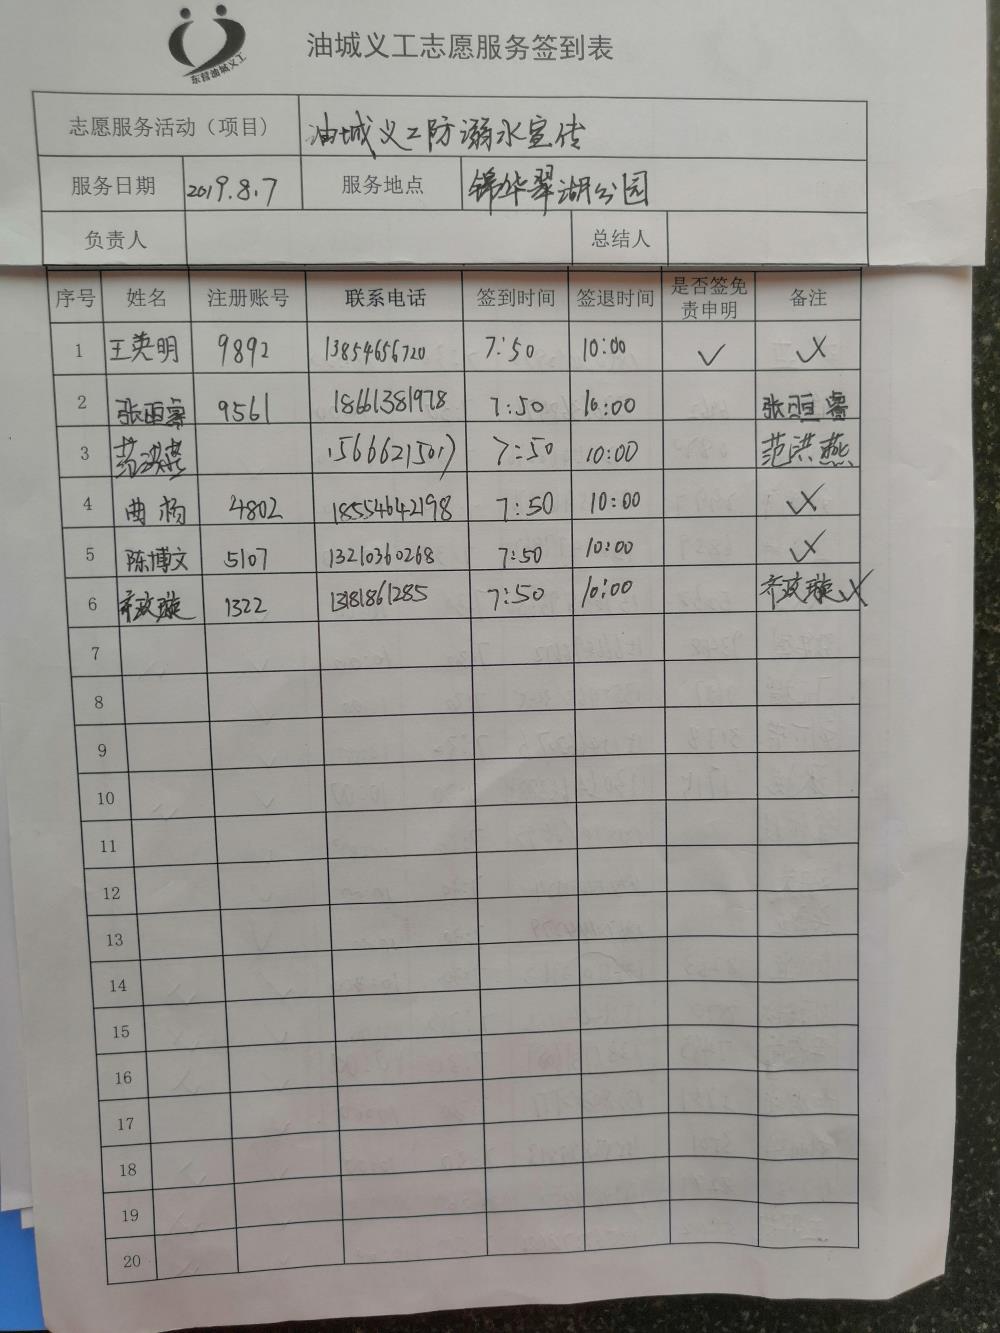 东营油城义工
油城义工志愿服务签到表
志愿服务活动（项目） 油城义工防溺水宣传
服务日期 2019.8.7 服务地点 锦华翠湖公园
负责人 总结人
序号 姓名 注册账号 联系电话 签到时间 签退时间 是否签免责申明 备注
1 王英明 9892 13854656720 7:50 10:00 ✓
2 张恒睿 9561 18661381978 7:50 10:00 张恒睿
3 范洪燕 15666215017 7:50 10:00 范洪燕
4 曲杨 4802 18554642198 7:50 10:00
5 陈博文 5107 13210360268 7:50 10:00
6 齐政璇 1322 13181861285 7:50 10:00 齐政璇
7
8
9
10
11
12
13
14
15
16
17
18
19
20